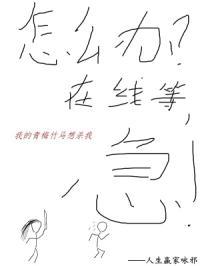 怎么办？
在线等，
我的青梅竹马想杀我
急！
——人生赢家咏邪